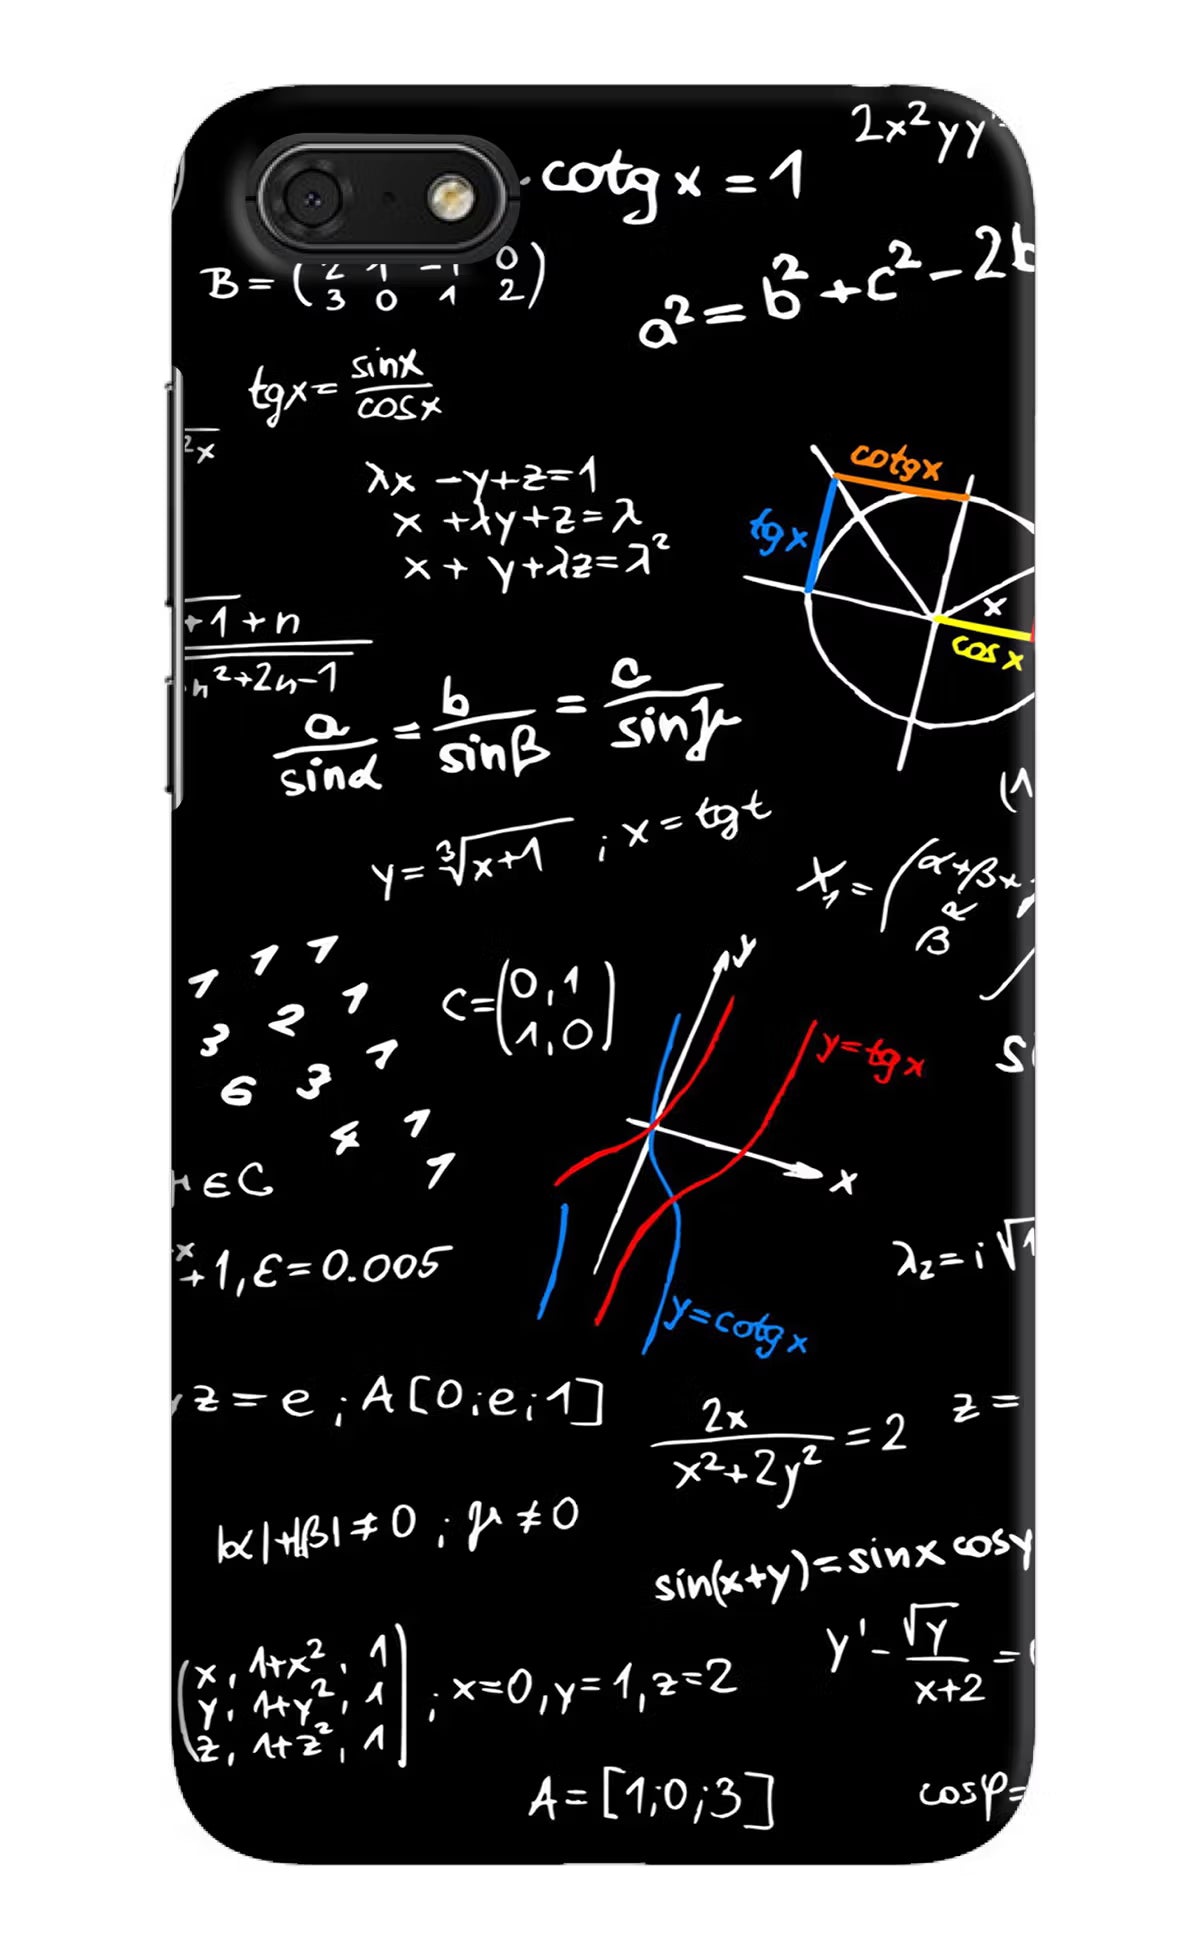 2x²yy'
cotg x = 1
B = ( 2 1 -1 0
3 0 1 2 )
a² = b² + c² - 2b
tgx = sinx
cosx
2x
λx - y + z = 1
x + λy + z = λ
x + y + λz = λ²
cotgx
tgx
x
cos x
+1 + n
n² + 2n - 1
a/sinα = b/sinβ = c/sinγ
y = ³√x+1 ; x = tgt
X₁ = ( α + βx
β
1 1 1
3 2 1
6 3 1
4 1
1
C = ( 0, 1
1, 0 )
y
y = tgx
x
y = cotgx
∈ C
+1, ε = 0.005
λ₂ = i√1
z = e ; A[0;e;1]
2x
x² + 2y² = 2
z =
|α|+|β| ≠ 0 ; μ ≠ 0
sin(x+y) = sinx cosy
y' - √y
x+2 =
( x, 1+x², 1
y, 1+y², 1
z, 1+z², 1 ) ; x=0, y=1, z=2
A = [1;0;3]
cosφ =